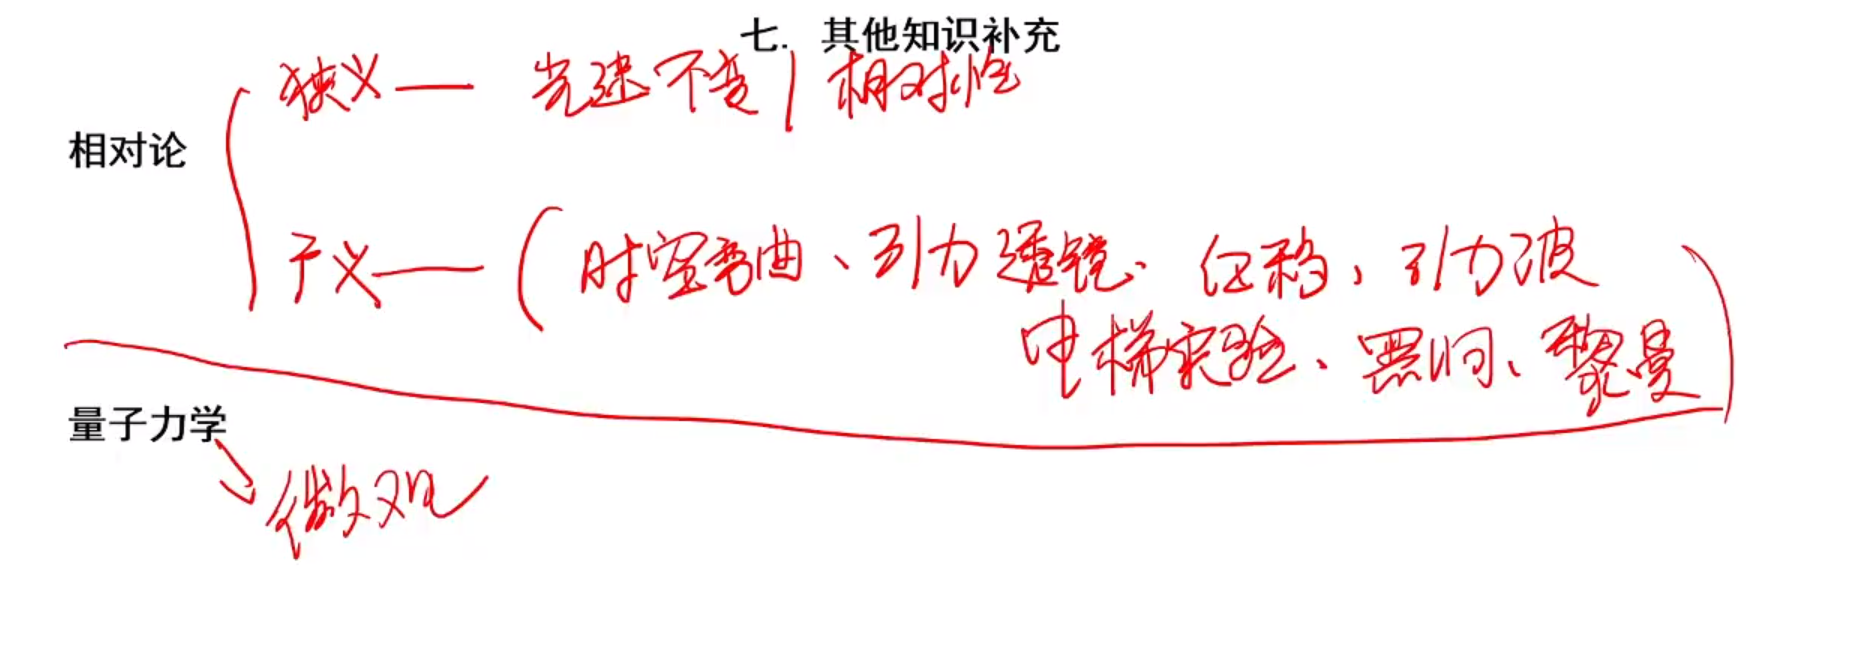 七. 其他知识补充
狭义 — 光速不变 | 相对性
相对论
广义 — ( 时空弯曲、引力透镜、红移、引力波
电梯实验、黑洞、黎曼 )
量子力学
微观